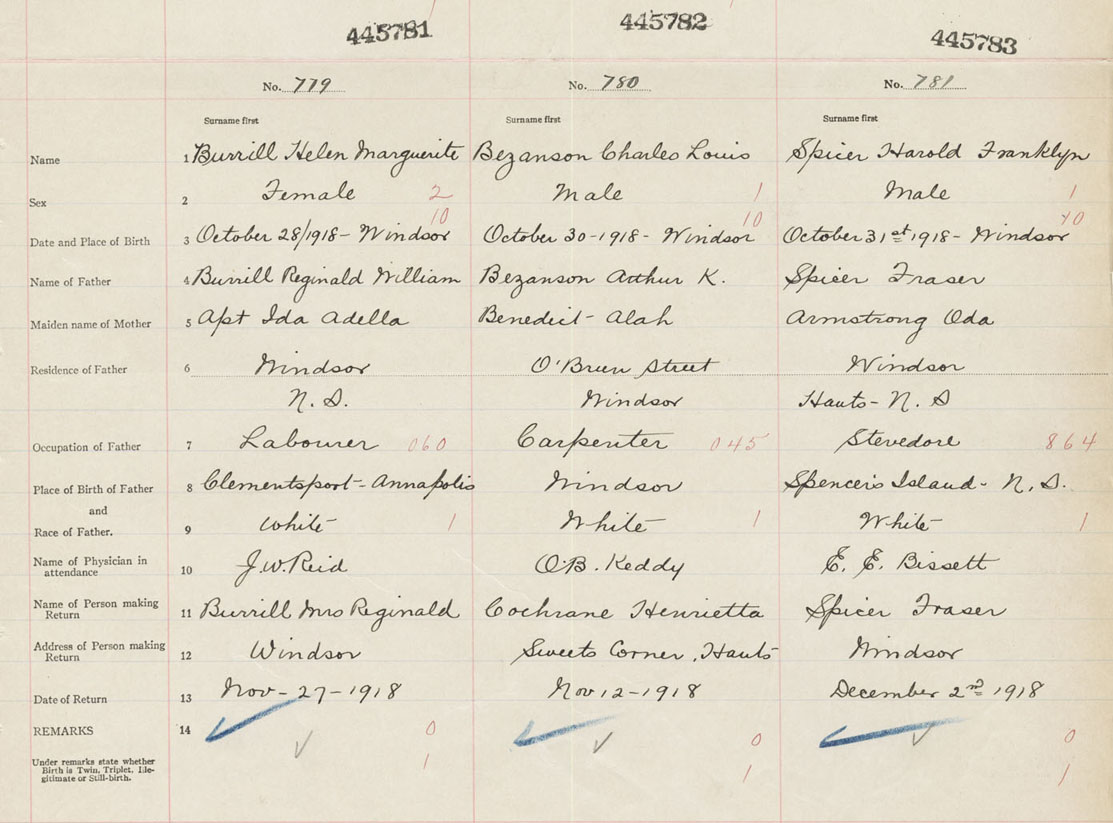 445781 445782 445783
No. 779 No. 780 No. 781
Surname first Surname first Surname first
Name 1 Burrill Helen Marguerite Bezanson Charles Louis Spicer Harold Franklyn
Sex 2 Female 2 Male 1 Male 1
10 10 10
Date and Place of Birth 3 October 28/1918 - Windsor October 30-1918 - Windsor October 31st 1918 - Windsor
Name of Father 4 Burrill Reginald William Bezanson Arthur K. Spicer Fraser
Maiden name of Mother 5 Apt Ida Adella Benedict - Alah Armstrong Oda
Residence of Father 6 Windsor O'Brien Street Windsor
N. S. Windsor Hants - N. S
Occupation of Father 7 Labourer 060 Carpenter 045 Stevedore 864
Place of Birth of Father 8 Clementsport - Annapolis Windsor Spencer's Island - N. S.
and
Race of Father. 9 White 1 White 1 White 1
Name of Physician in
attendance 10 J. W. Reid O. B. Keddy E. E. Bissett
Name of Person making
Return 11 Burrill Mrs Reginald Cochrane Henrietta Spicer Fraser
Address of Person making
Return 12 Windsor Sweets Corner, Hants Windsor
Date of Return 13 Nov - 27 - 1918 Nov 12 - 1918 December 2nd 1918
REMARKS 14 0 0 0
Under remarks state whether
Birth is Twin, Triplet, Ille-
gitimate or Still-birth. 1 1 1